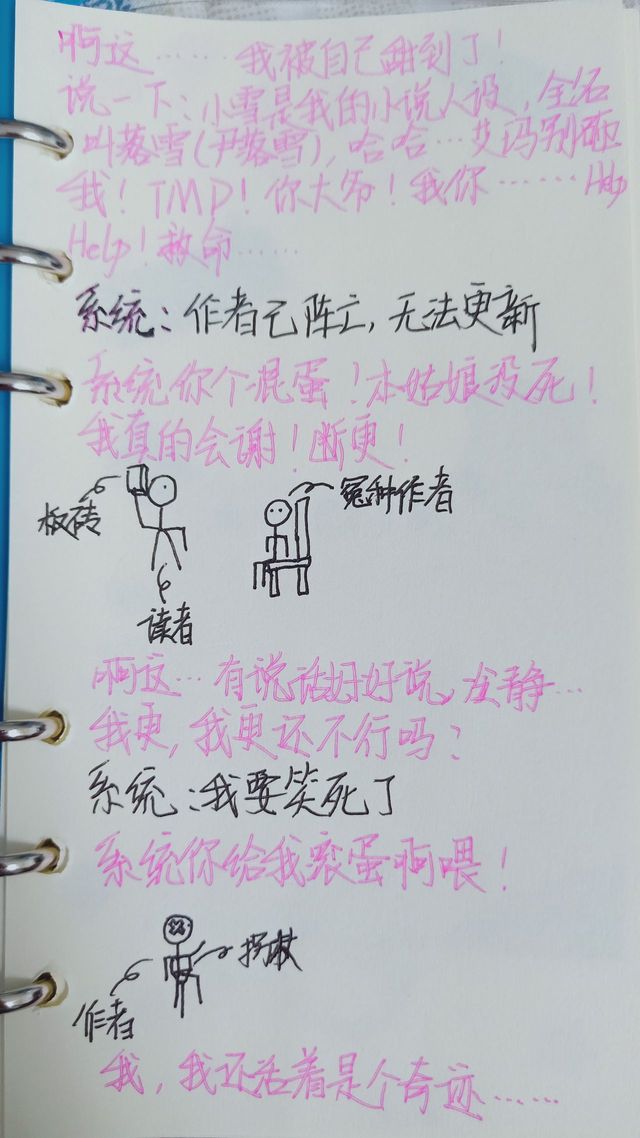 啊这……我被自己甜到了！
说一下：小雪是我的小说人设，全名
叫落雪(尹落雪)，哈哈…艾玛别砸
我！TMD！你大爷！我你……Help
Help！救命……
系统：作者已阵亡，无法更新
系统你个混蛋！本姑娘没死！
我真的会谢！断更！
板砖
冤种作者
读者
啊这…有说话好好说，冷静…
我更，我更还不行吗？
系统：我要笑死了
系统你给我滚蛋啊喂！
拐杖
作者
我，我还活着是个奇迹……